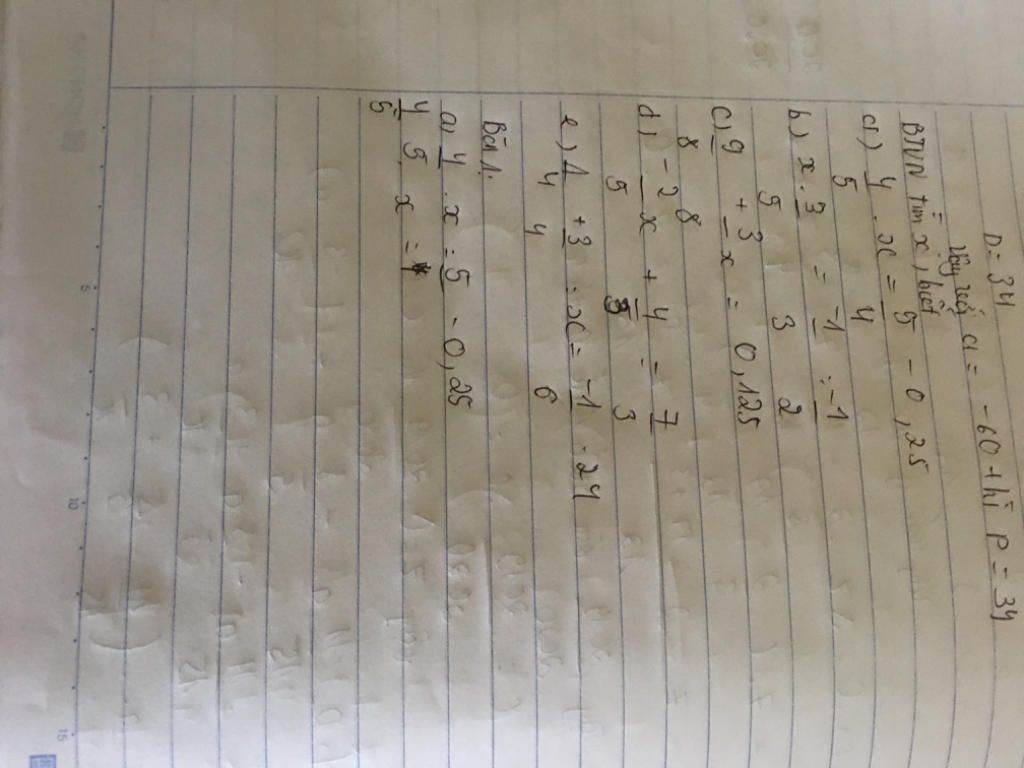 D = 34
Vậy với a = -60 thì P = 34
BTVN tìm x, biết
a) 4/5 . x = 5/4 - 0,25
b) x . 3/5 = -1/3 : -1/2
c) 9/8 + 3/8 x = 0,125
d) -2/5 x + 4/5 = 7/3
e) 1/4 + 3/4 = x = -1/6 . 24
Bài 1:
a) 4/5 . x = 5 - 0,25
4/5 x = 1